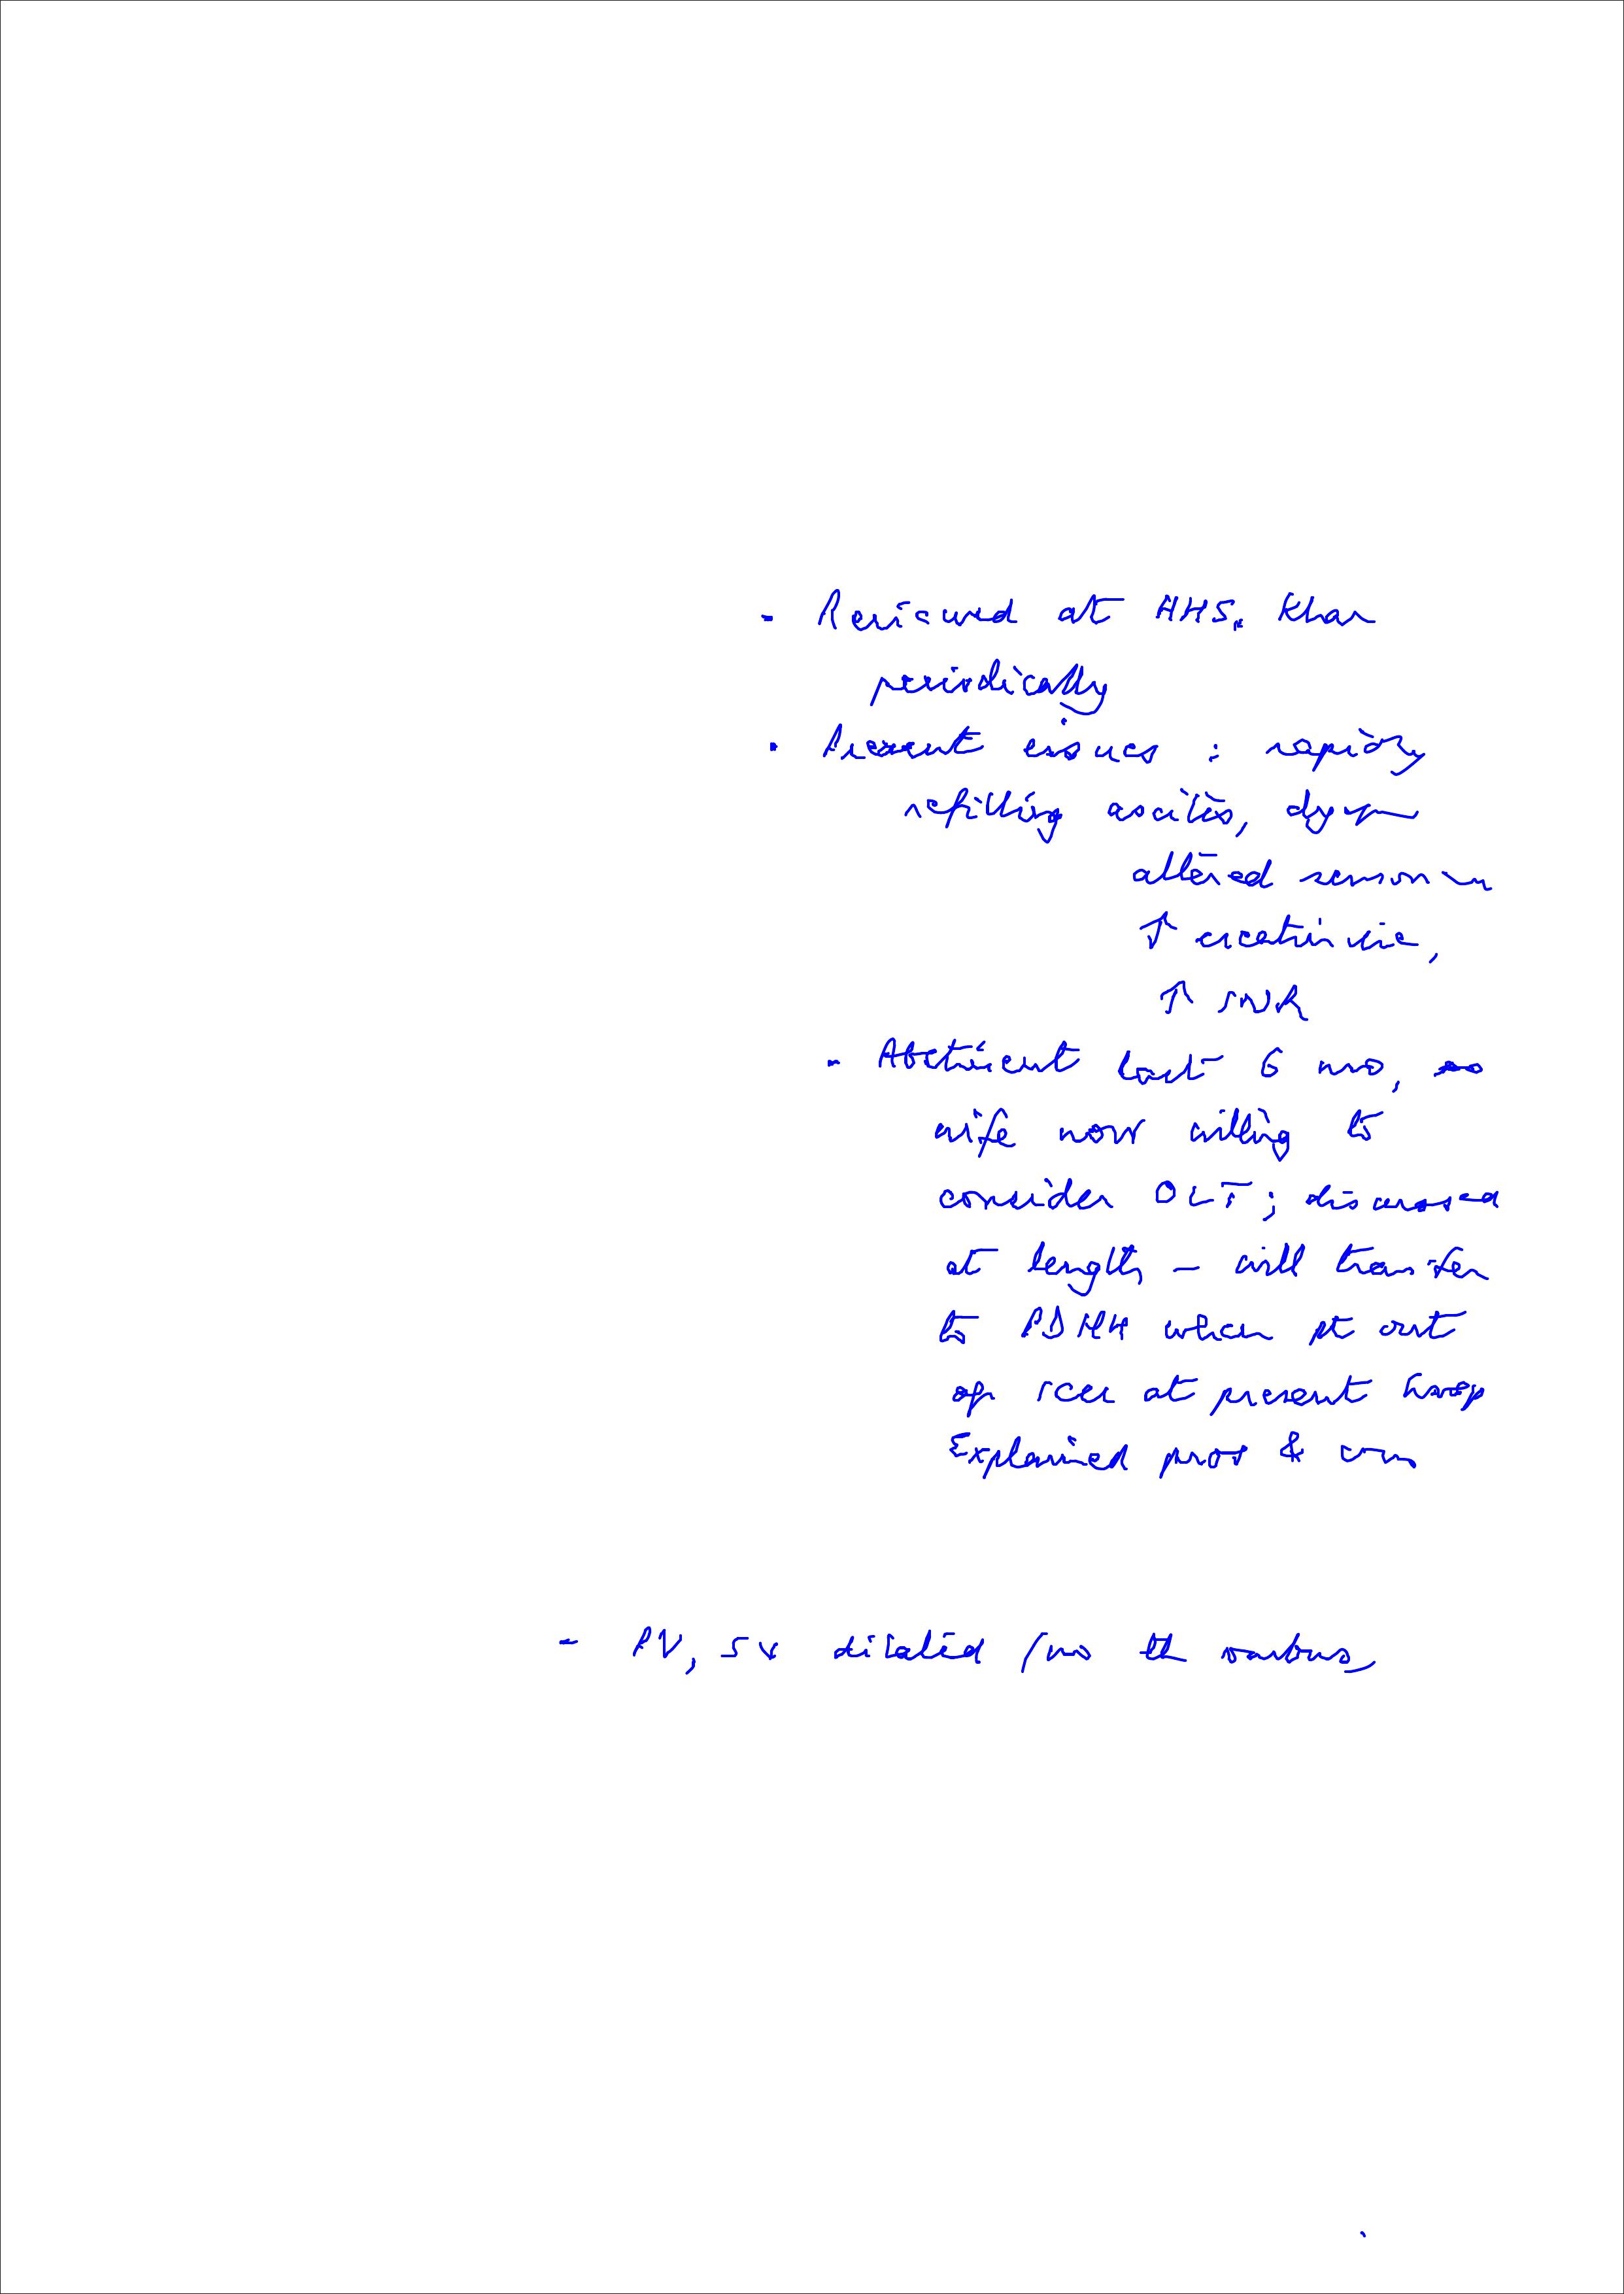 - Reviewed at HHS, Khar
periodically
- Present issues : rapidly
refilling ascites,
altered sensorium
↑ creatinine,
↑ INR
- Abstinent last 6 mo,
wife now willing to
consider OLT; discussed
at length - will transfer
to PDHH when pt out
of ICU at present hosp
Explained pros & cons
- PV, SV dilated (no